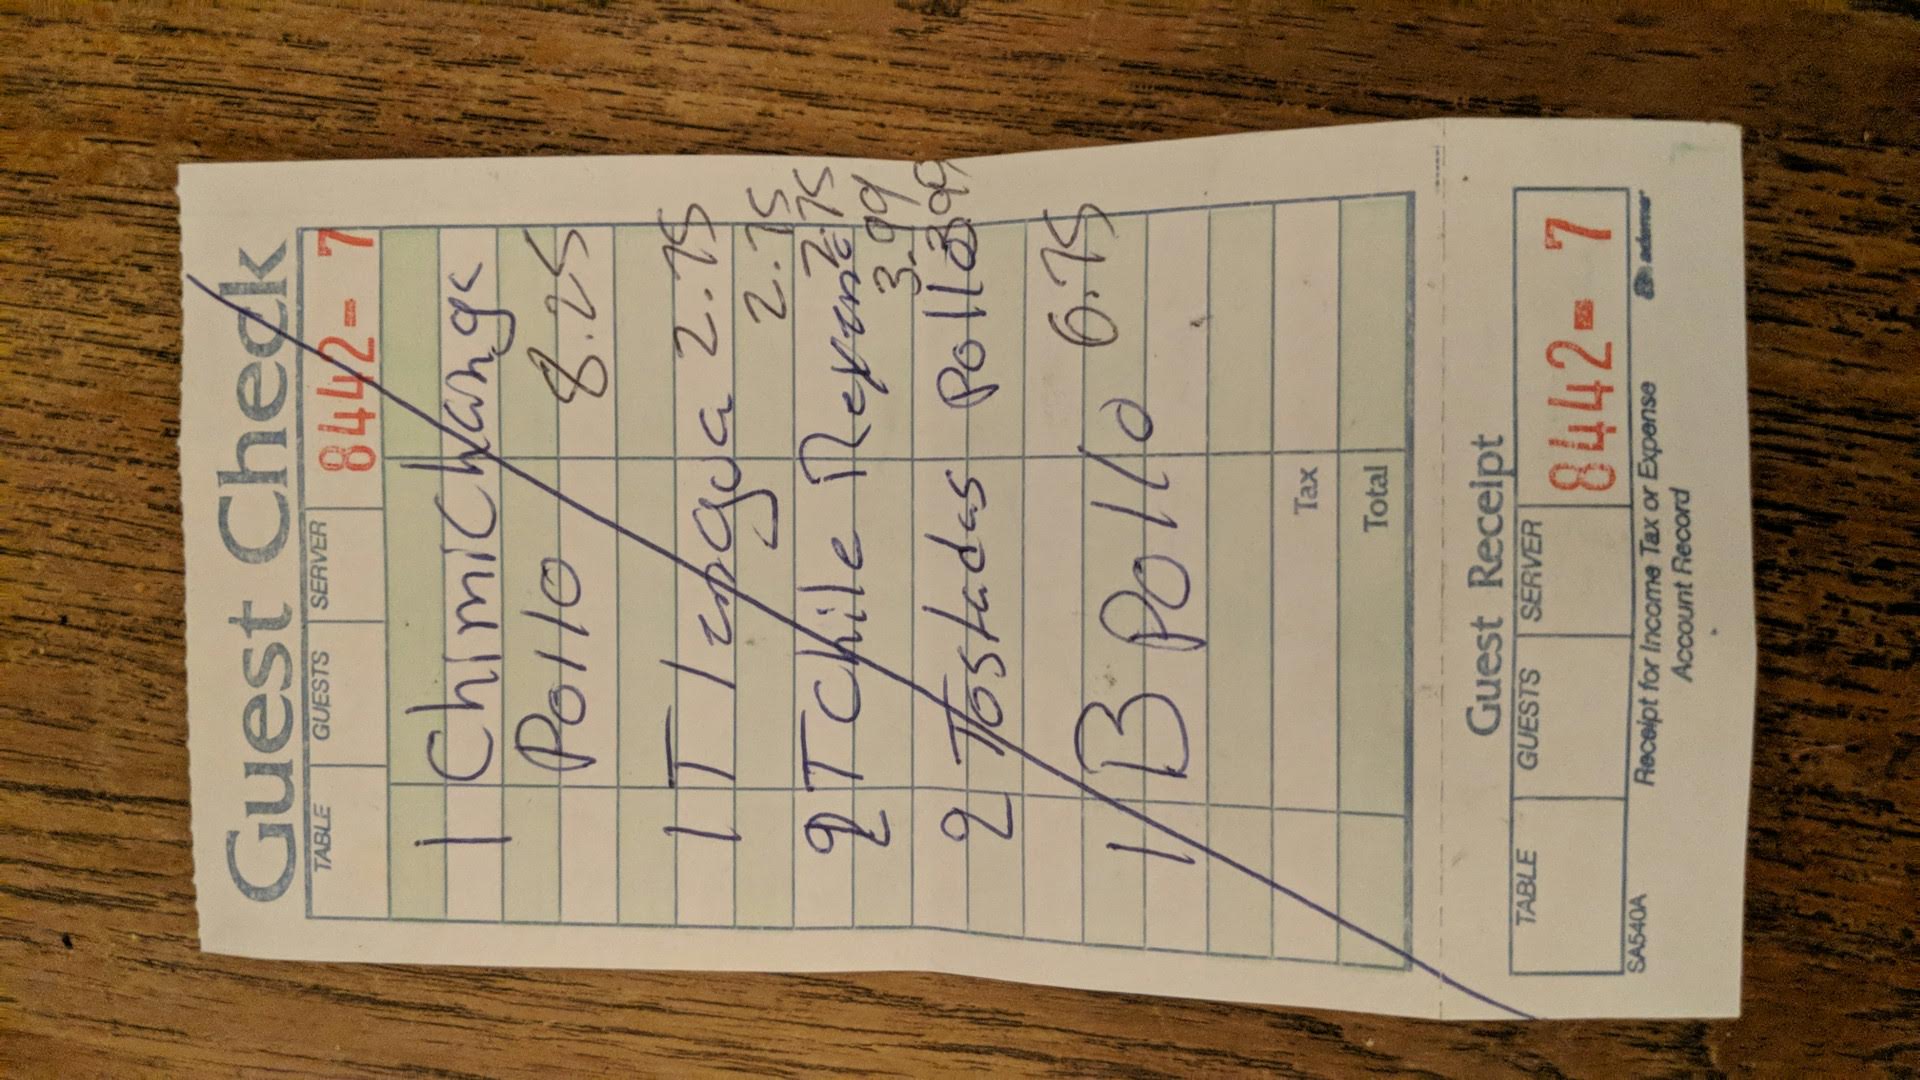 Guest Check
TABLE GUESTS SERVER 8442-7
1 Chimichanga
Pollo 8.25
1 T lengua 2.75
2.75
2 T Chile Reyeno 2.75
3.99
2 Tostadas Pollo 3.99
1 B Pollo 6.75
Tax
Total
Guest Receipt
TABLE GUESTS SERVER 8442-7
SA540A Receipt for Income Tax or Expense
Account Record
adams